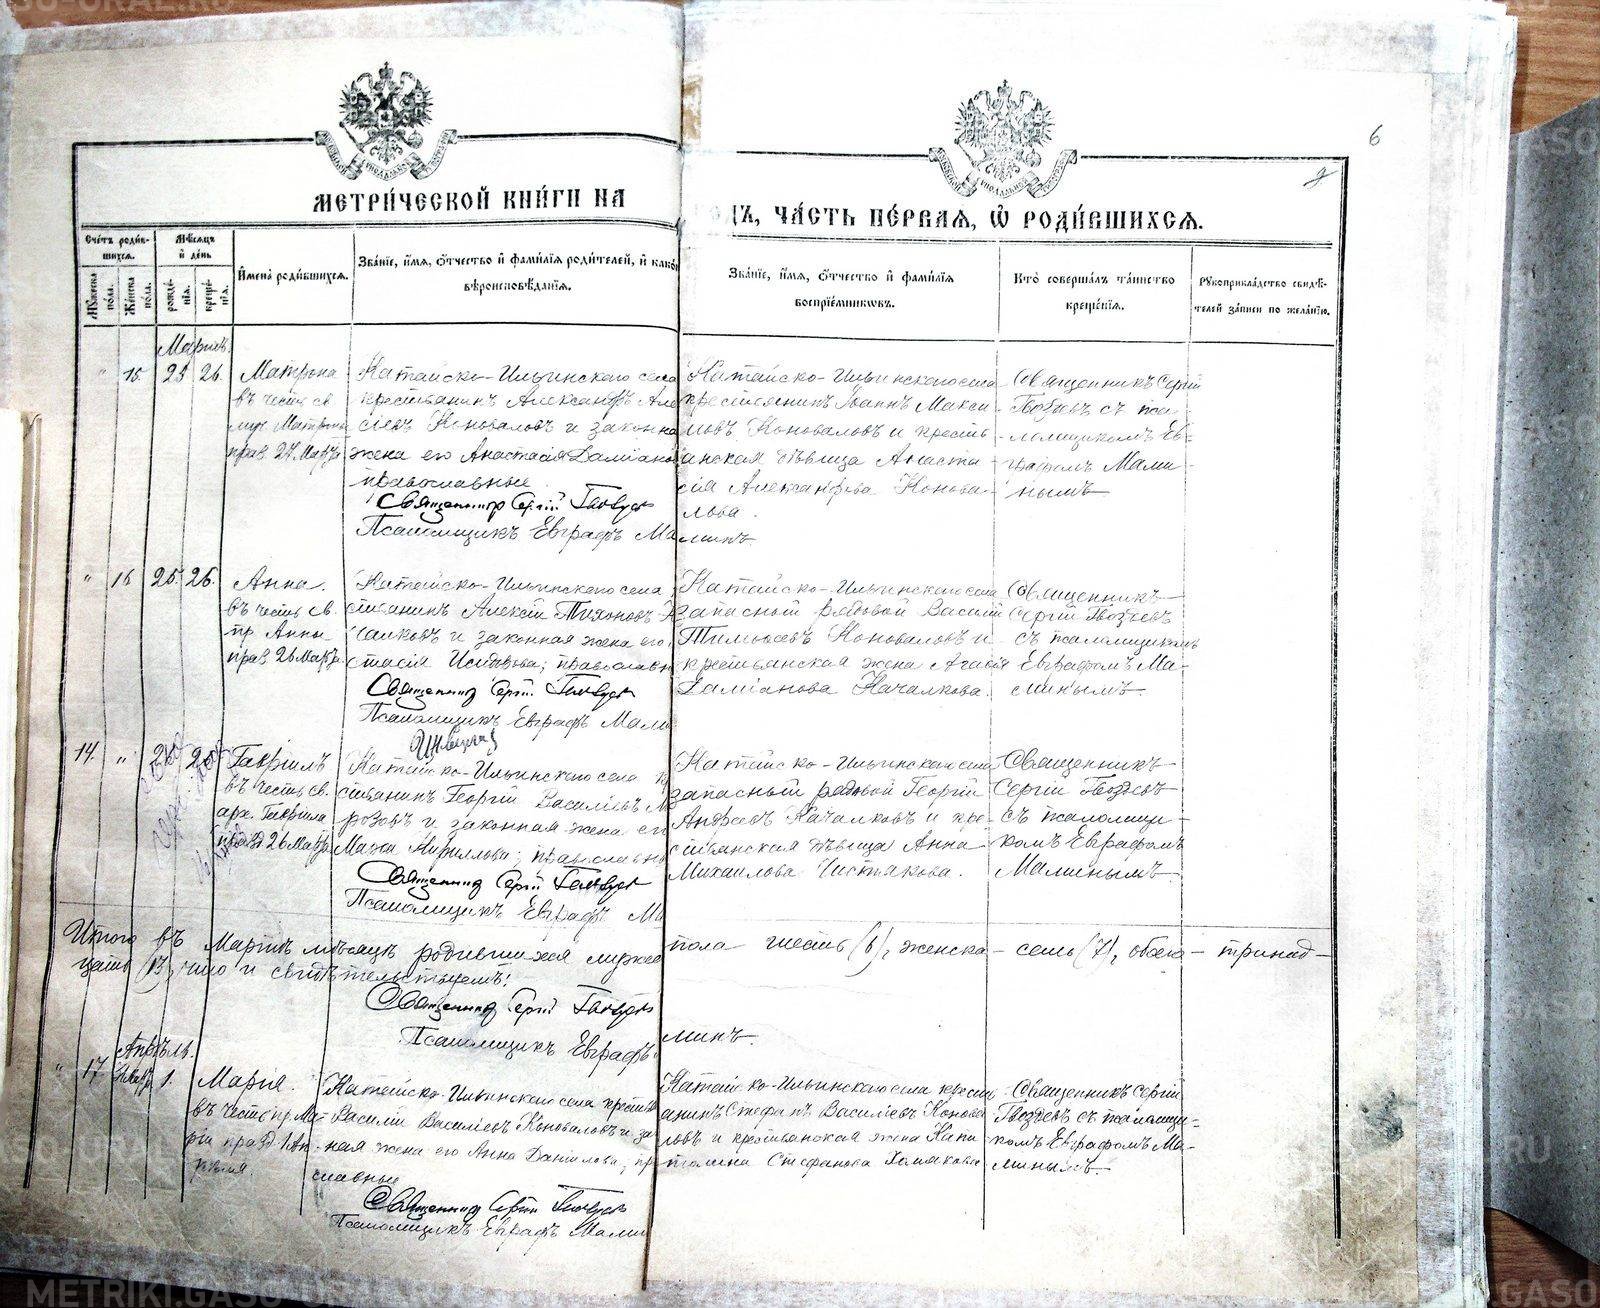 6
МЕТРИ́ЧЕСКОЙ КНИ́ГИ НА
ЧА́СТЬ ПЕ́РВАЯ, Ѽ РОДИ́ВШИХСЯ.
Счетъ роди́в-
шихся.
Мѣсяцъ
и день
Имена роди́вшихся.
Зва́нїе, и́мя, о́тчество и фами́лїя роди́телей, и како́
вѣроисповѣ́данїя.
Зва́нїе, и́мя, о́тчество и фами́лїя
воспрїе́мниковъ.
Кто̀ соверша́лъ та́инство
креще́нїя.
Рукоприкла́дство свидѣ́-
телей за́писи по жела́нїю.
Му́жеска
по́ла.
Же́нска
по́ла.
рожде́-
нїя.
креще́-
нїя.
Мартъ.
" 15. 25 26.
Матрона
въ честь св.
муч. Матроны
празд. 27 Марта
Катайско-Ильинскаго села
крестьянинъ Александръ Але
сіевъ Коноваловъ и законна
жена его Анастасія Даміано
православные.
Священникъ Сергій Гвоздевъ
Псаломщикъ Евграфъ Ма
минъ.
Катайско-Ильинскаго села
крестьянинъ Іоаннъ Макси
мовъ Коноваловъ и кресть
янская дѣвица Анаста
сія Александрова Конова-
лова.
Священникъ Сергій
Гвоздевъ съ пса-
ломщикомъ Ев-
графомъ Мами-
нымъ
" 16 25. 26.
Анна.
въ честь св.
пр. Анны
празд. 26 Марта
Катайско-Ильинскаго села
стьянинъ Алексій Тихоновъ К
чалковъ и законная жена его
стасія Исидорова; православн
Священникъ Сергій Гвоздевъ
Псаломщикъ Евграфъ Мами
Катайско-Ильинскаго села
запасный рядовой Василій
Тимофеевъ Коноваловъ и
крестьянская жена Агафія
Даміанова Качалкова.
Священникъ
Сергій Гвоздевъ
съ псаломщикомъ
Евграфомъ Ма-
минымъ.
14. "
Гавріилъ
въ честь св.
арх. Гавріила
празд. 26 Марта
Катайско-Ильинскаго села кр
стьянинъ Георгій Василіевъ М
розовъ и законная жена его
Марѳа Кириллова; православн
Священникъ Сергій Гвоздевъ
Псаломщикъ Евграфъ Ма
Катайско-Ильинскаго села
запасный рядовой Георгій
Андреевъ Качалковъ и кре-
стьянская дѣвица Анна
Михаилова Чистякова.
Священникъ
Сергій Гвоздевъ
съ псаломщи-
комъ Евграфомъ
Маминымъ.
Итого въ Мартѣ мѣсяцѣ родившихся мужеска пола шесть (6), женска- семь (7), обоего- тринад-
цать (13), что и свидѣтельствуемъ:
Священникъ Сергій Гвоздевъ
Псаломщикъ Евграфъ
минъ.
Апрѣль.
" 17 1.
Марія.
въ честь пр. Ма-
ріи празд. 1 Ап-
рѣля
Катайско-Ильинскаго села крестья
Василій Василіевъ Коноваловъ и за
ная жена его Анна Даніилова; пр
славные
Священникъ Сергій Гвоздевъ
Псаломщикъ Евграфъ Мами
Катайско-Ильинскаго села кресть
янинъ Стефанъ Василіевъ Конова
ловъ и крестьянская жена Капи
толина Стефанова
Священникъ Сергій
Гвоздевъ съ псаломщи-
комъ Евграфомъ Ма-
минымъ.
METRIKI.GASO-URAL.RU